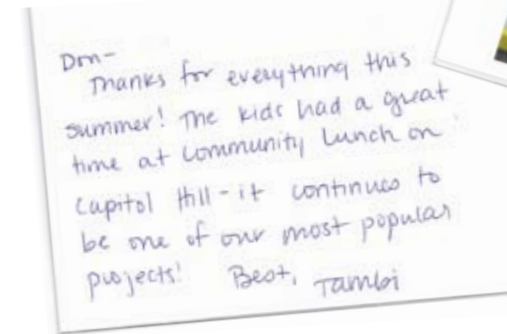 Don-
Thanks for everything this
summer! The kids had a great
time at Community Lunch on
Capitol Hill - it continues to
be one of our most popular
projects! Best, Tambi